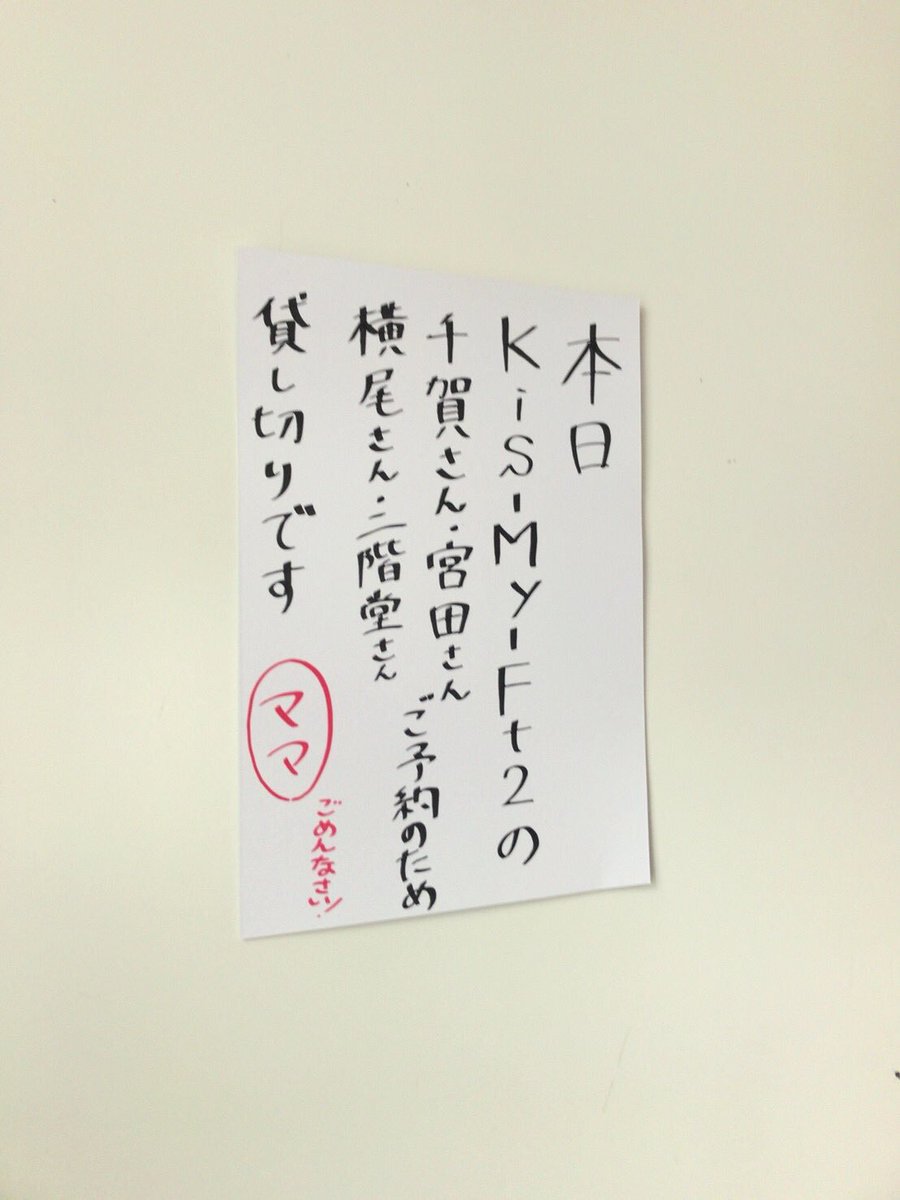 本日
KiS-My-Ft2の
千賀さん・宮田さん
横尾さん・二階堂さん
ご予約のため
貸し切りです
ママ
ごめんなさい!